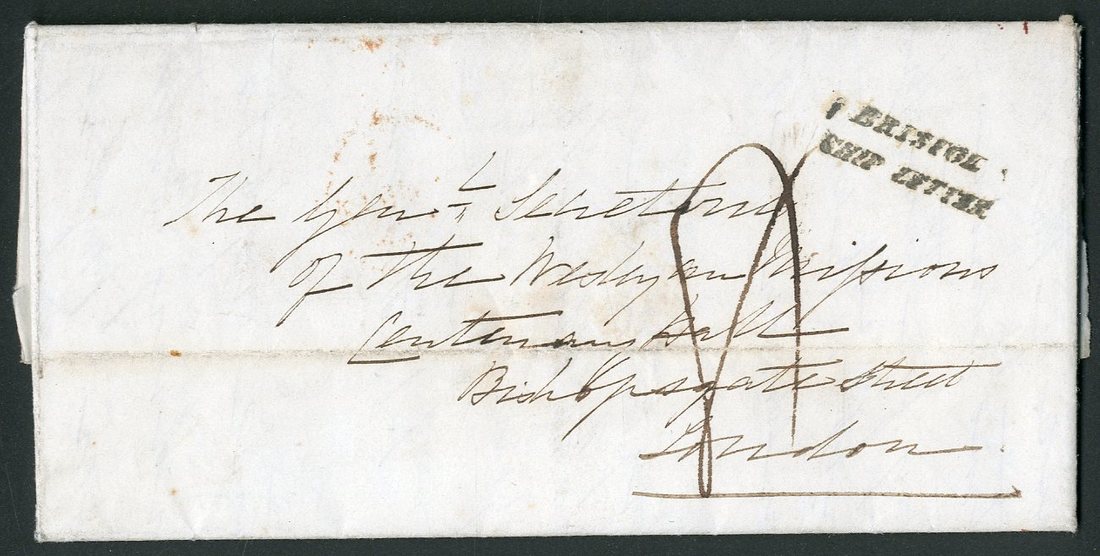 BRISTOL
SHIP LETTER
The Genl Secretary
of the Wesleyan Missions
Centenary Hall
Bishopsgate Street
London